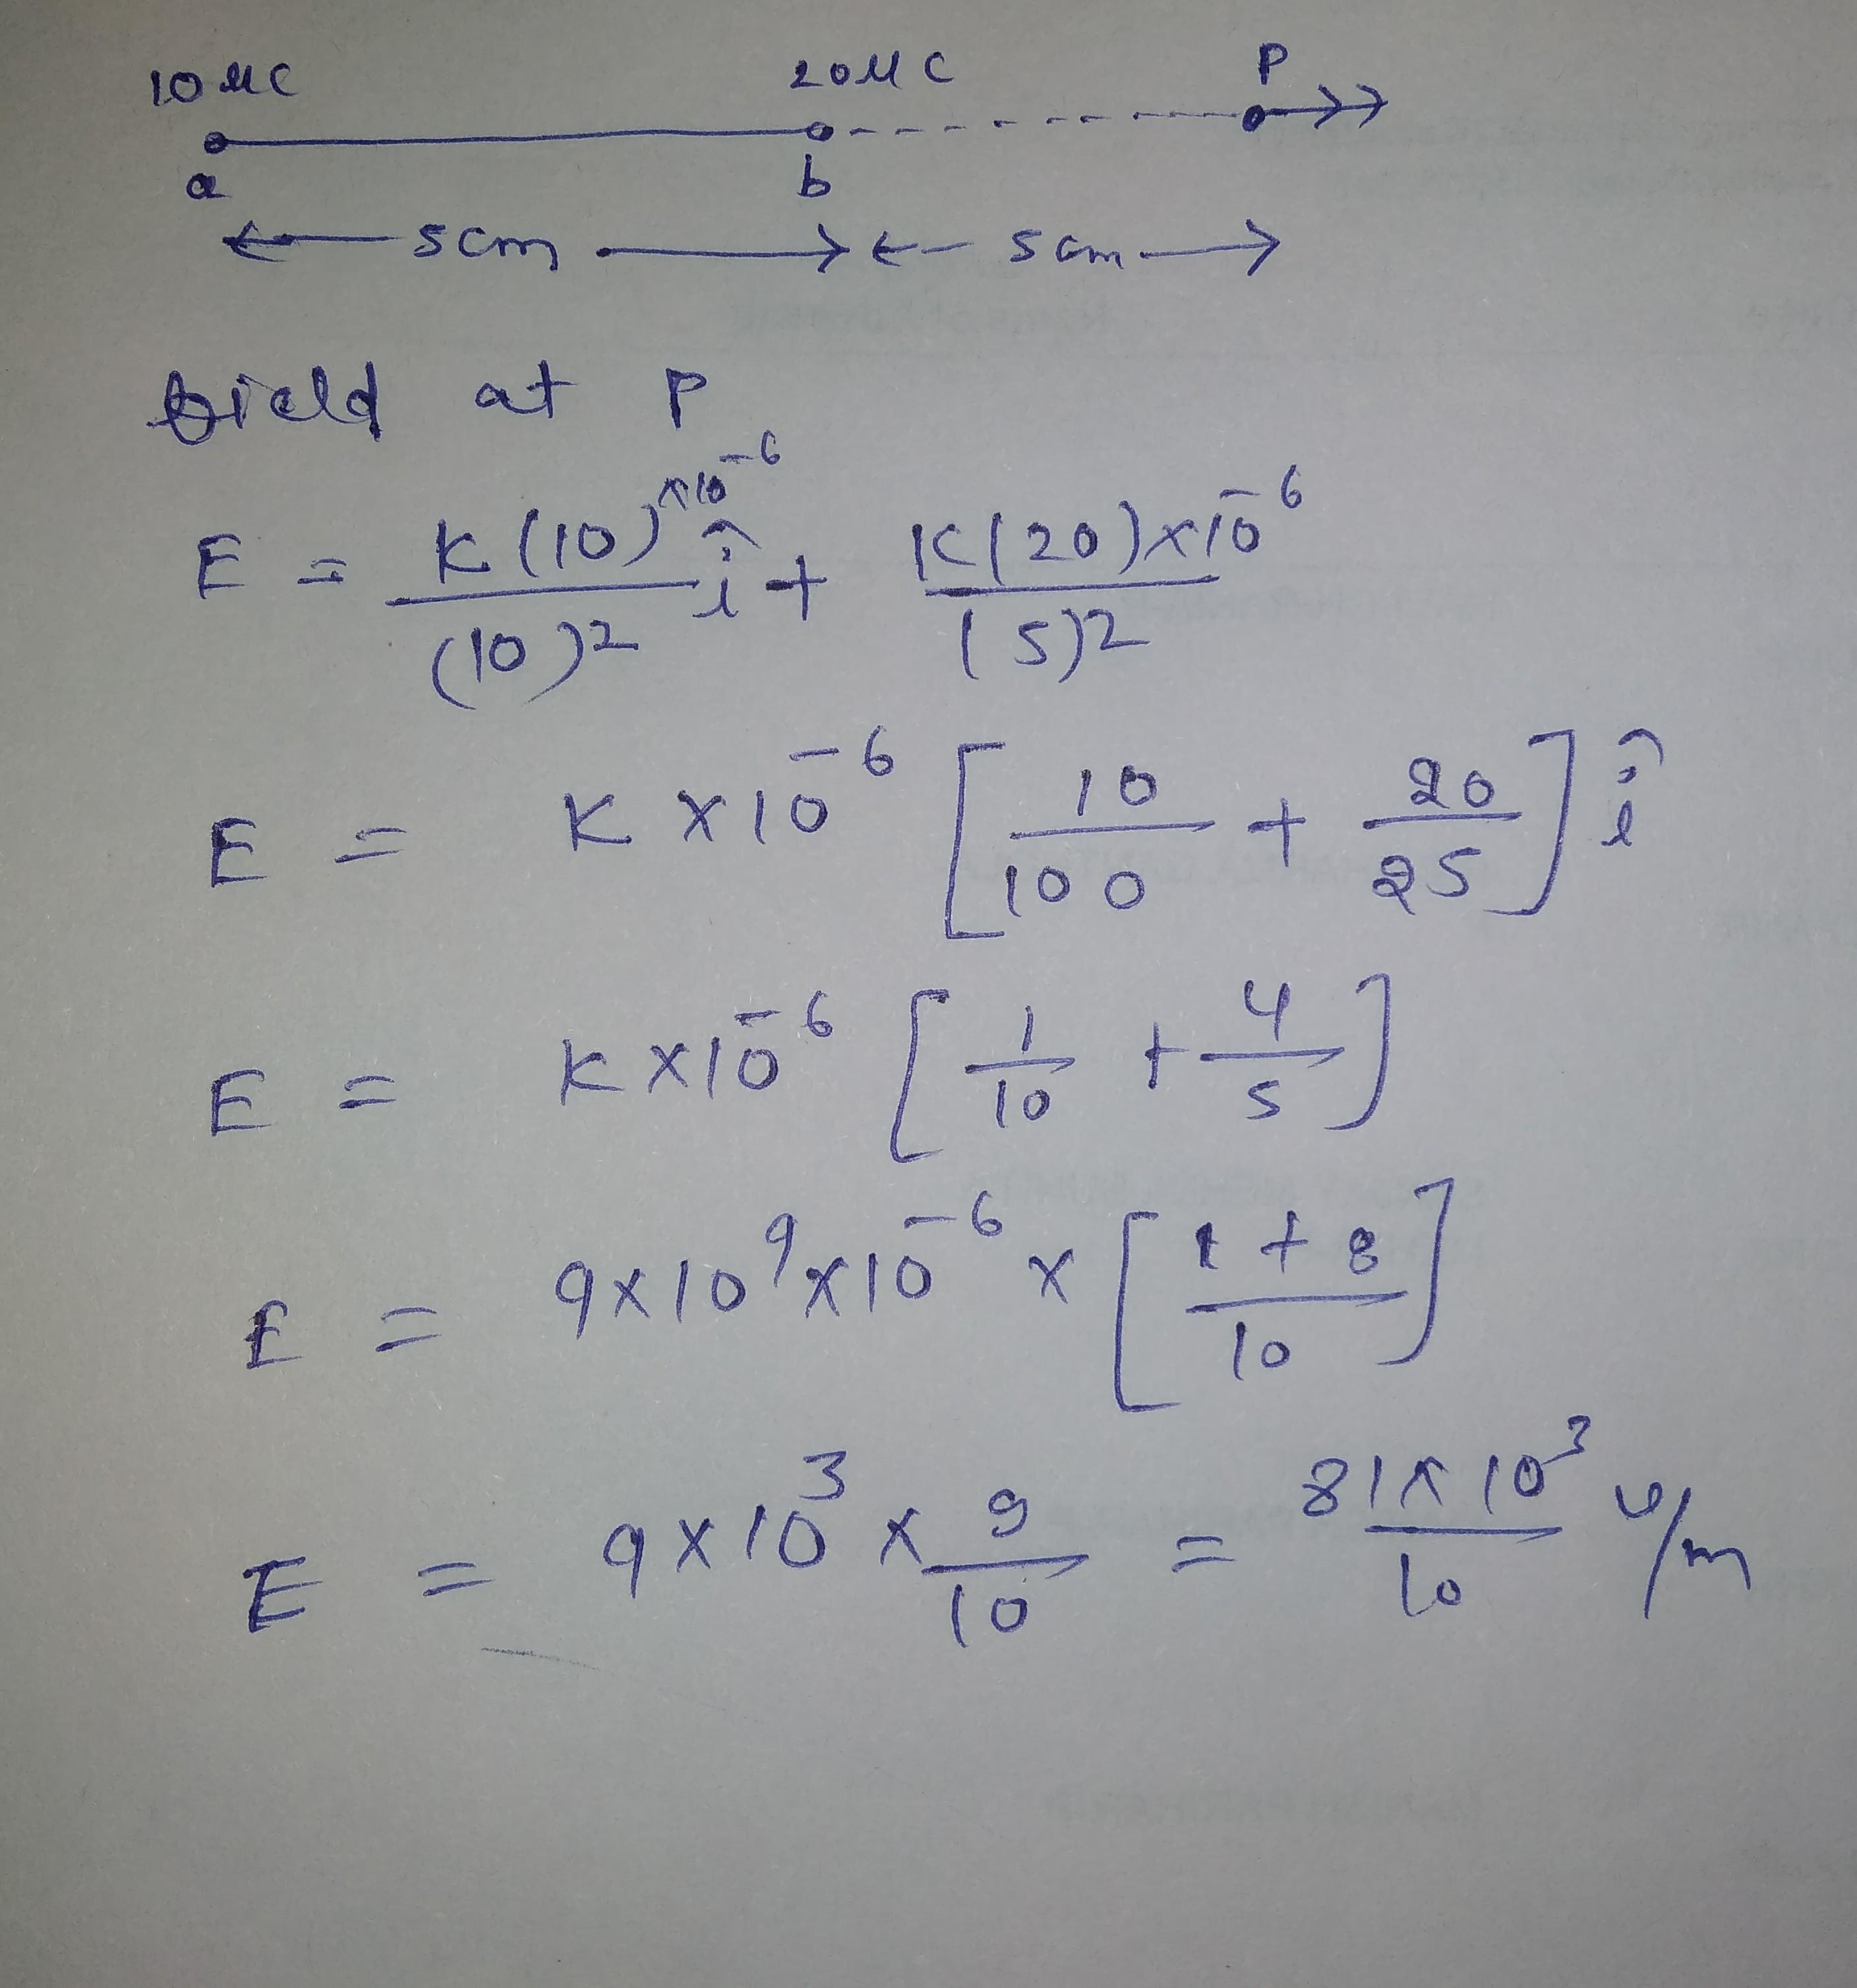 10 μC 20 μC P
a b
5cm 5cm
field at P
E = K(10)×10^-6 / (10)^2 î + K(20)×10^-6 / (5)^2
E = K×10^-6 [10/100 + 20/25] î
E = K×10^-6 [1/10 + 4/5]
E = 9×10^9×10^-6 × [1+8 / 10]
E = 9×10^3 × 9/10 = 81×10^3 / 10 v/m